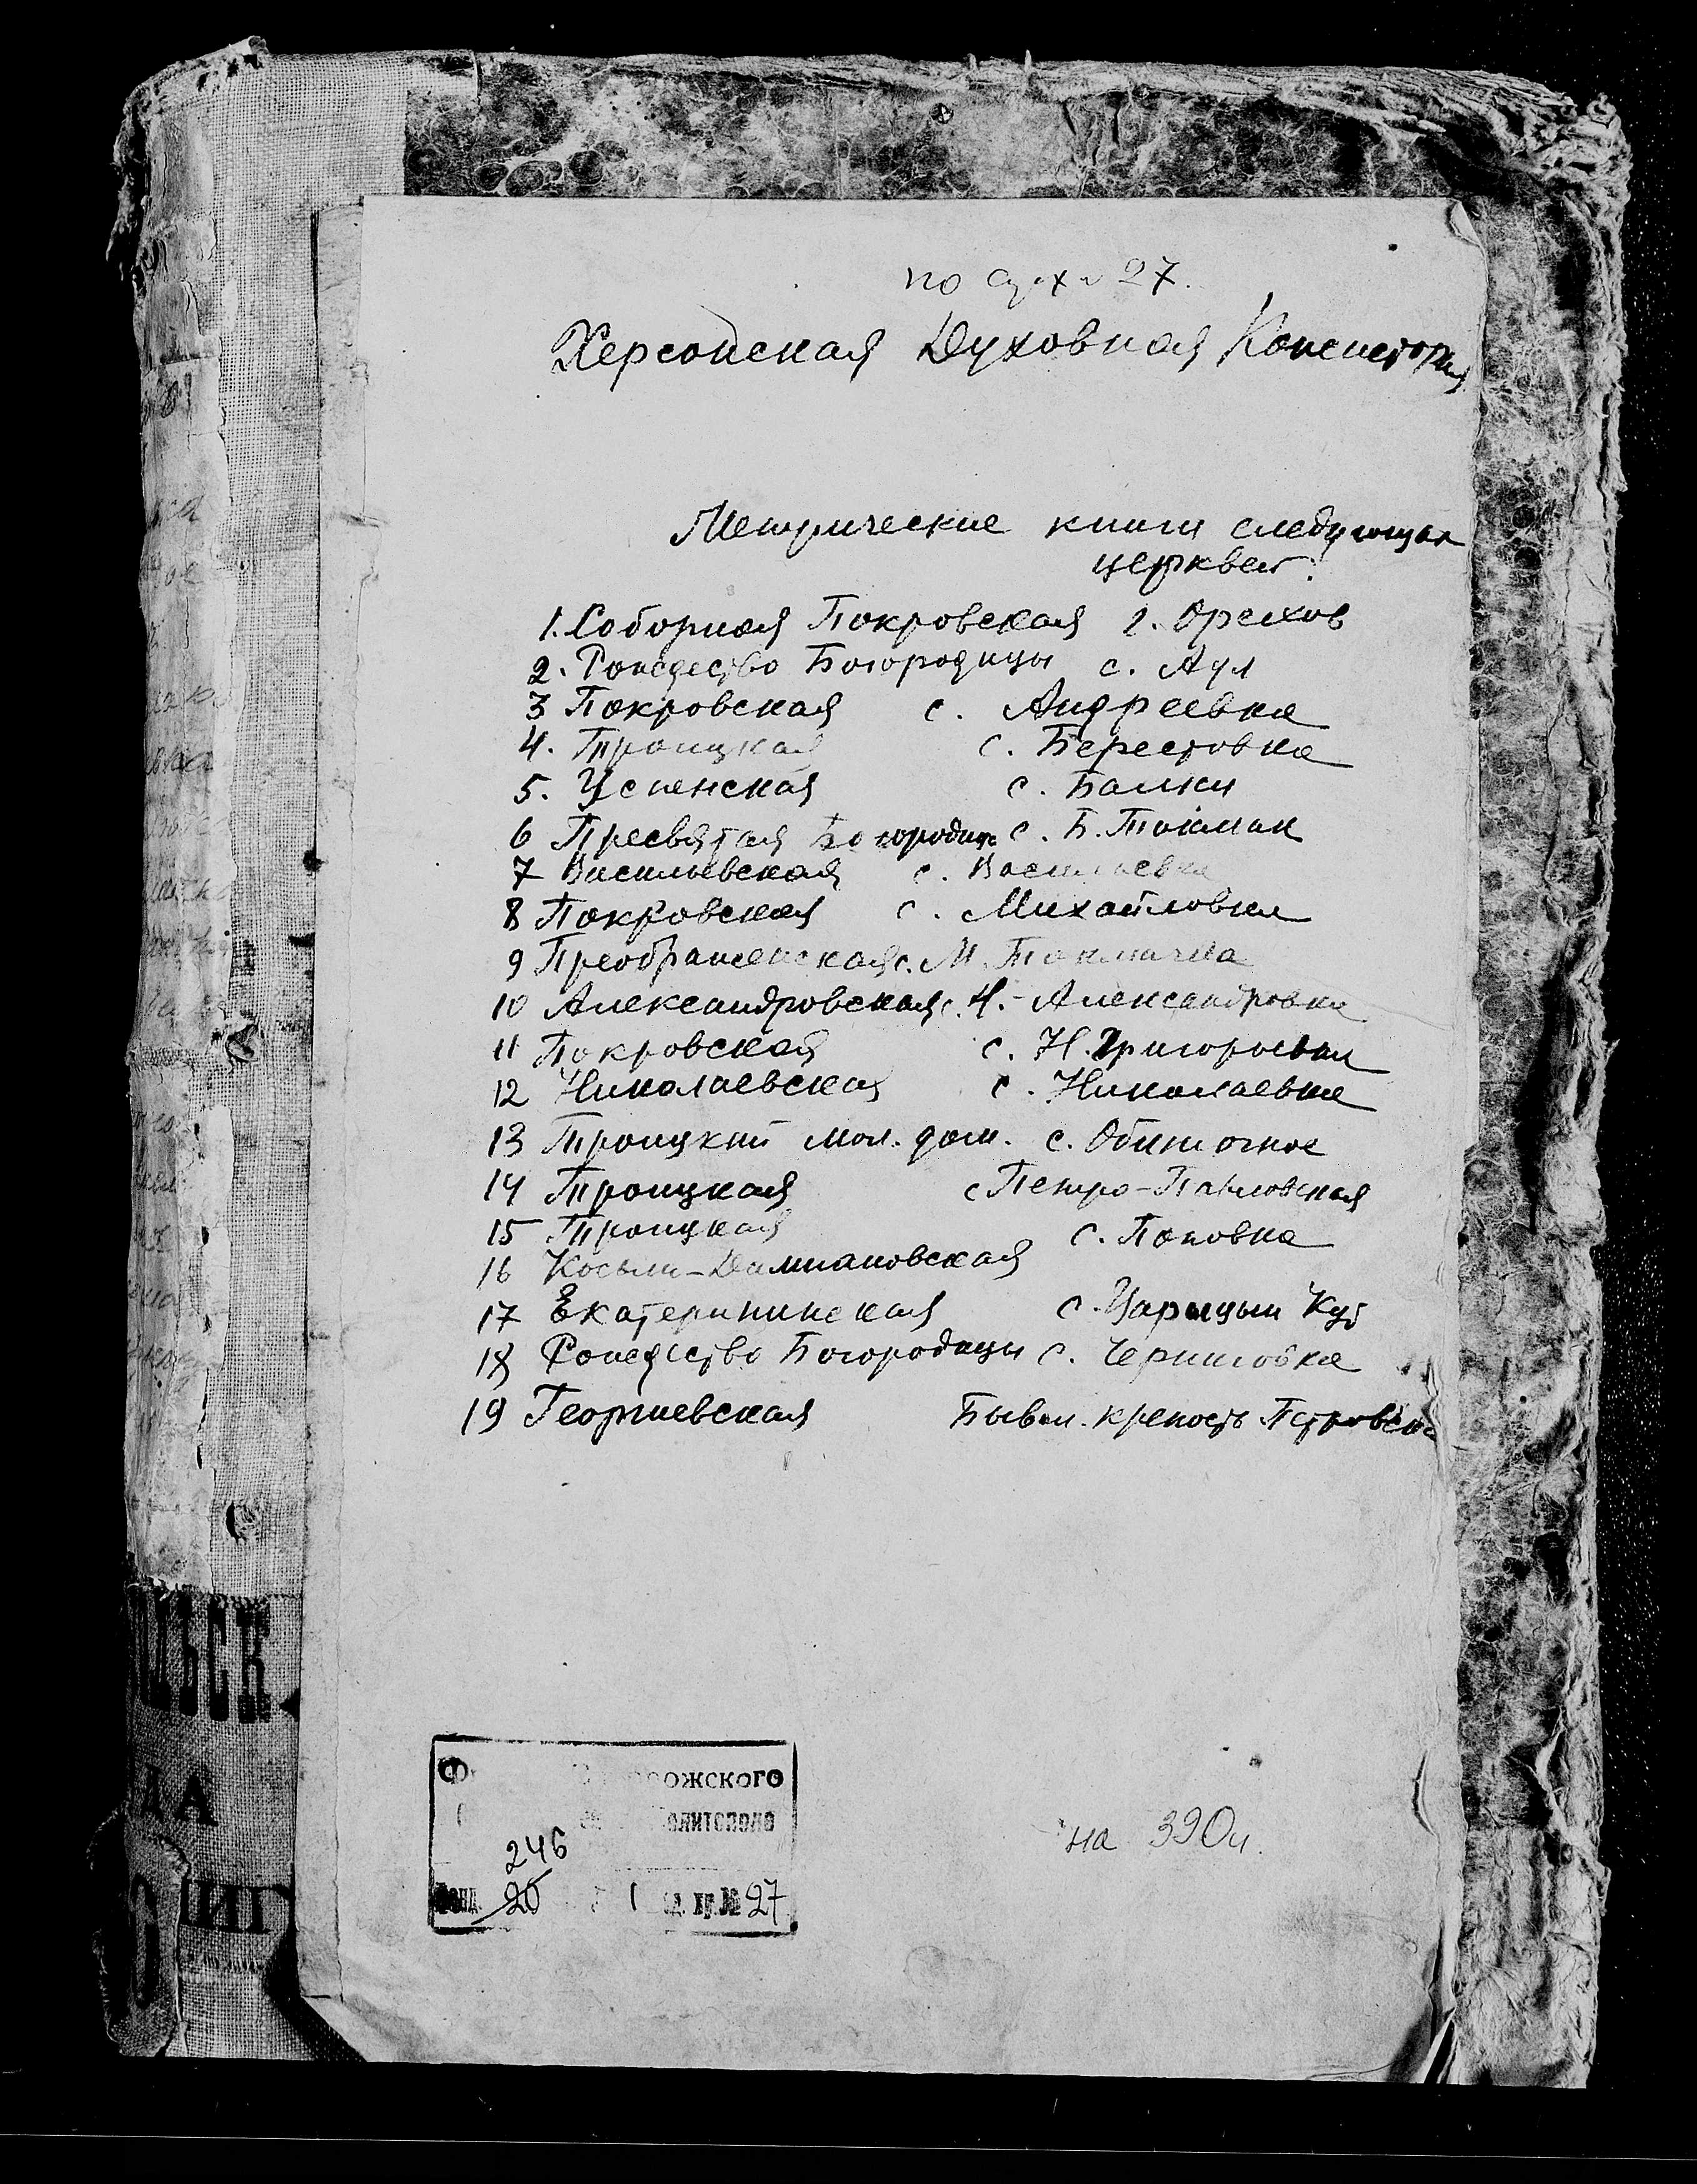 27.
Херсонская Духовная Консистория
Метрические книги следующих
церквей:
1. Соборная Покровская г. Орехов
2. Рождество Богородицы с. Аул
3 Покровская с. Андреевка
4. Троицкая с. Берестовка
5. Успенская с. Балки
6 Пресвятая Богородица с. Б. Токмак
7 Васильевская с. Васильевка
8 Покровская с. Михайловка
9 Преображенская с. М. Токмачка
10 Александровская с. Н.-Александровка
11 Покровская с. Н. Григорьевка
12 Николаевская с. Николаевка
13 Троицкий мол. дом. с. Обиточное
14 Троицкая с Петро-Павловская
15 Троицкая с. Поповка
16 Косьми-Дамиановская
17 Екатерининская с. Царицын Кут
18 Рождество Богородицы с. Черниговка
19 Георгиевская Бывш. крепость Петровска
ОЛЬСК
ДА
НИГ
ожского
литополе
246
Фонд 20 1 № 27
на 390 л.